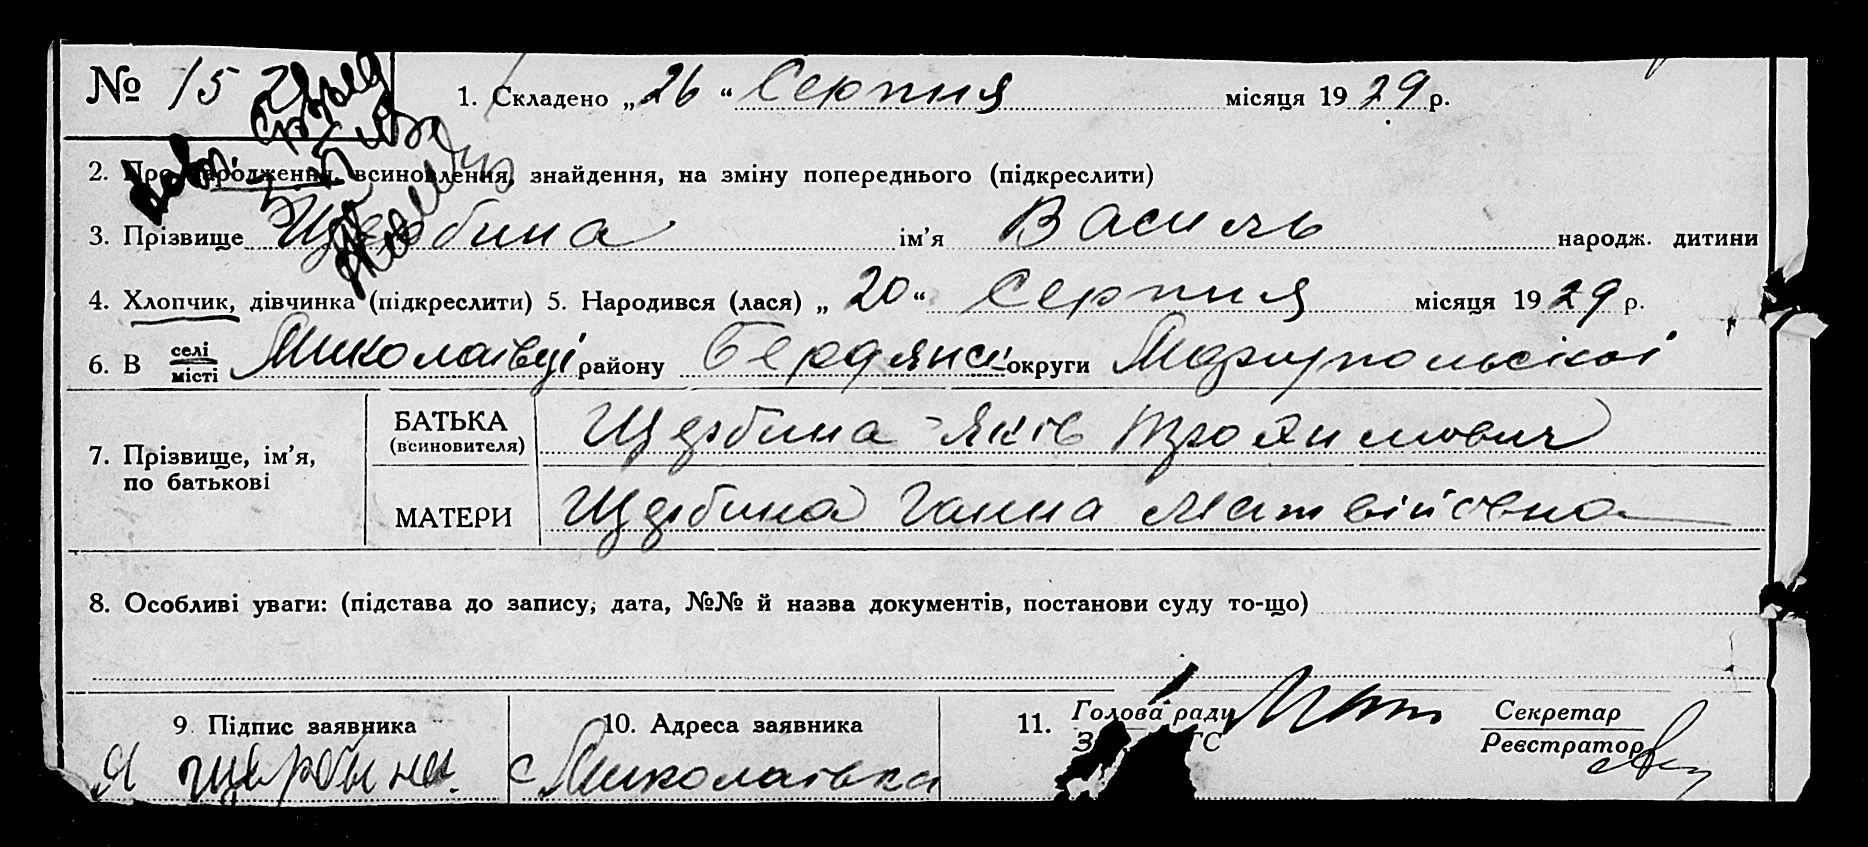 № 15 1. Складено „26“ Серпня місяця 1929 р.
2. Про народження, всиновлення, знайдення, на зміну попереднього (підкреслити)
3. Прізвище Щербина ім'я Василь народж. дитини
4. Хлопчик, дівчинка (підкреслити) 5. Народився (лася) „20“ Серпня місяця 1929 р.
6. В селі/місті Миколаївці району Бердянськ округи Маріупольської
7. Прізвище, ім'я, по батькові
БАТЬКА (всиновителя) Щербина Яків Трохимович
МАТЕРИ Щербина Ганна Матвійовна
8. Особливі уваги: (підстава до запису, дата, №№ й назва документів, постанови суду то-що)
9. Підпис заявника 10. Адреса заявника 11. Голова ради Секретар
Реєстратор
Я Щербына. с Миколаївка